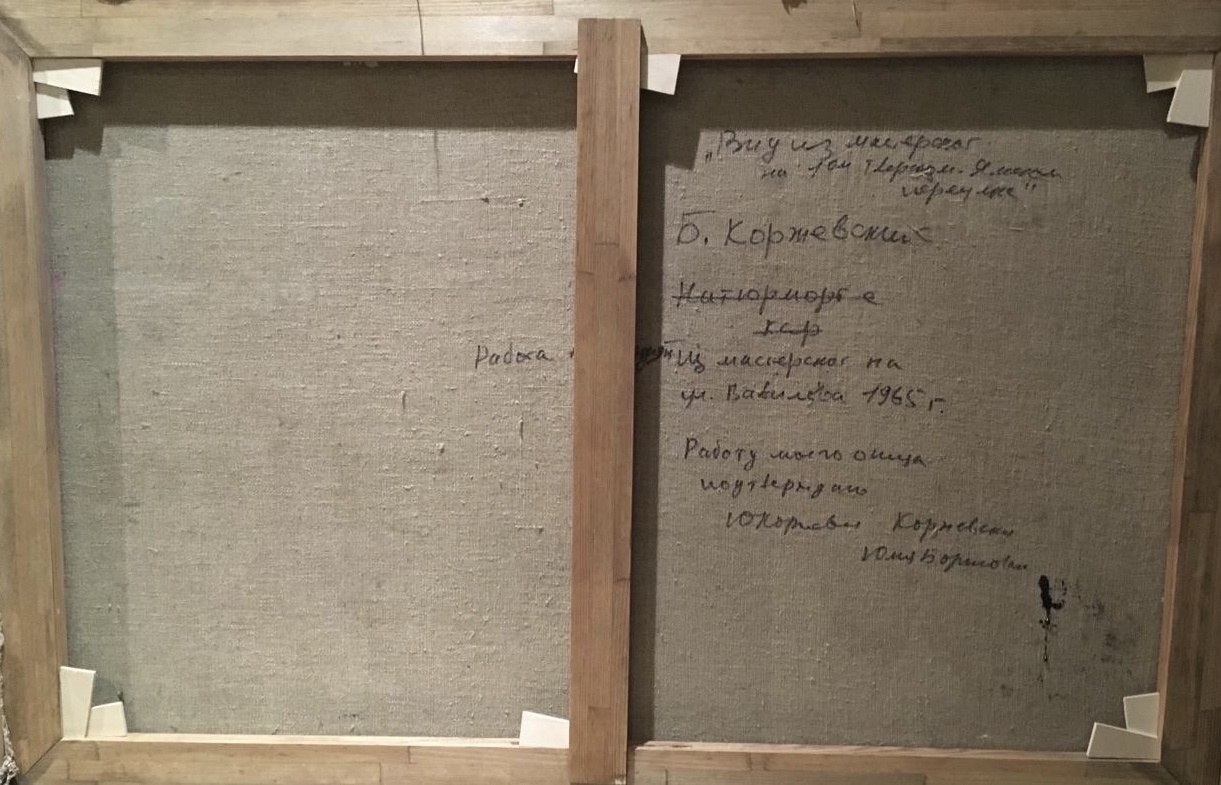 „Вид из мастерской
на 1ой Тверской-Ямском
переулке"
Б. Коржевский
Натюрморт с
Работа
Из мастерской на
ул. Вавилова 1965 г.
Работу моего отца
подтверждаю
Коржевская
Юлия Борисовна